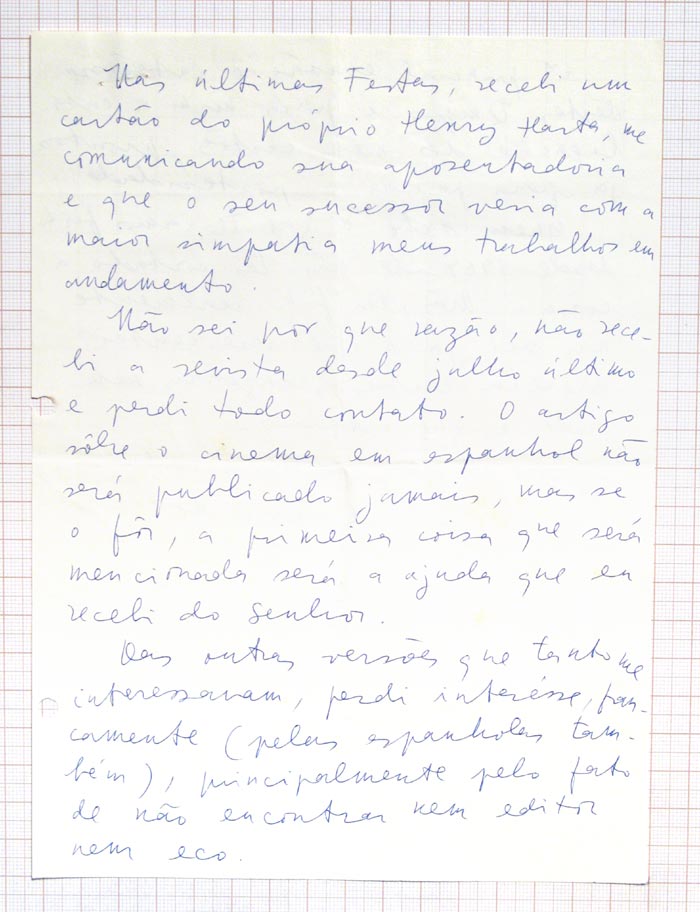 Nas últimas Festas, recebi um
cartão do próprio Henry Harta, me
comunicando sua aposentadoria
e que o seu sucessor veria com a
maior simpatia meus trabalhos em
andamento.
Não sei por que razão, não rece-
bi a revista desde julho último
e perdi todo contato. O artigo
sôbre o cinema em espanhol não
será publicado jamais, mas se
o fôr, a primeira coisa que será
mencionada será a ajuda que eu
recebi do Senhor.
Das outras versões que tanto me
interessavam, perdi interêsse, fran-
camente (pelas espanholas tam-
bém), principalmente pelo fato
de não encontrar nem editor
nem eco.